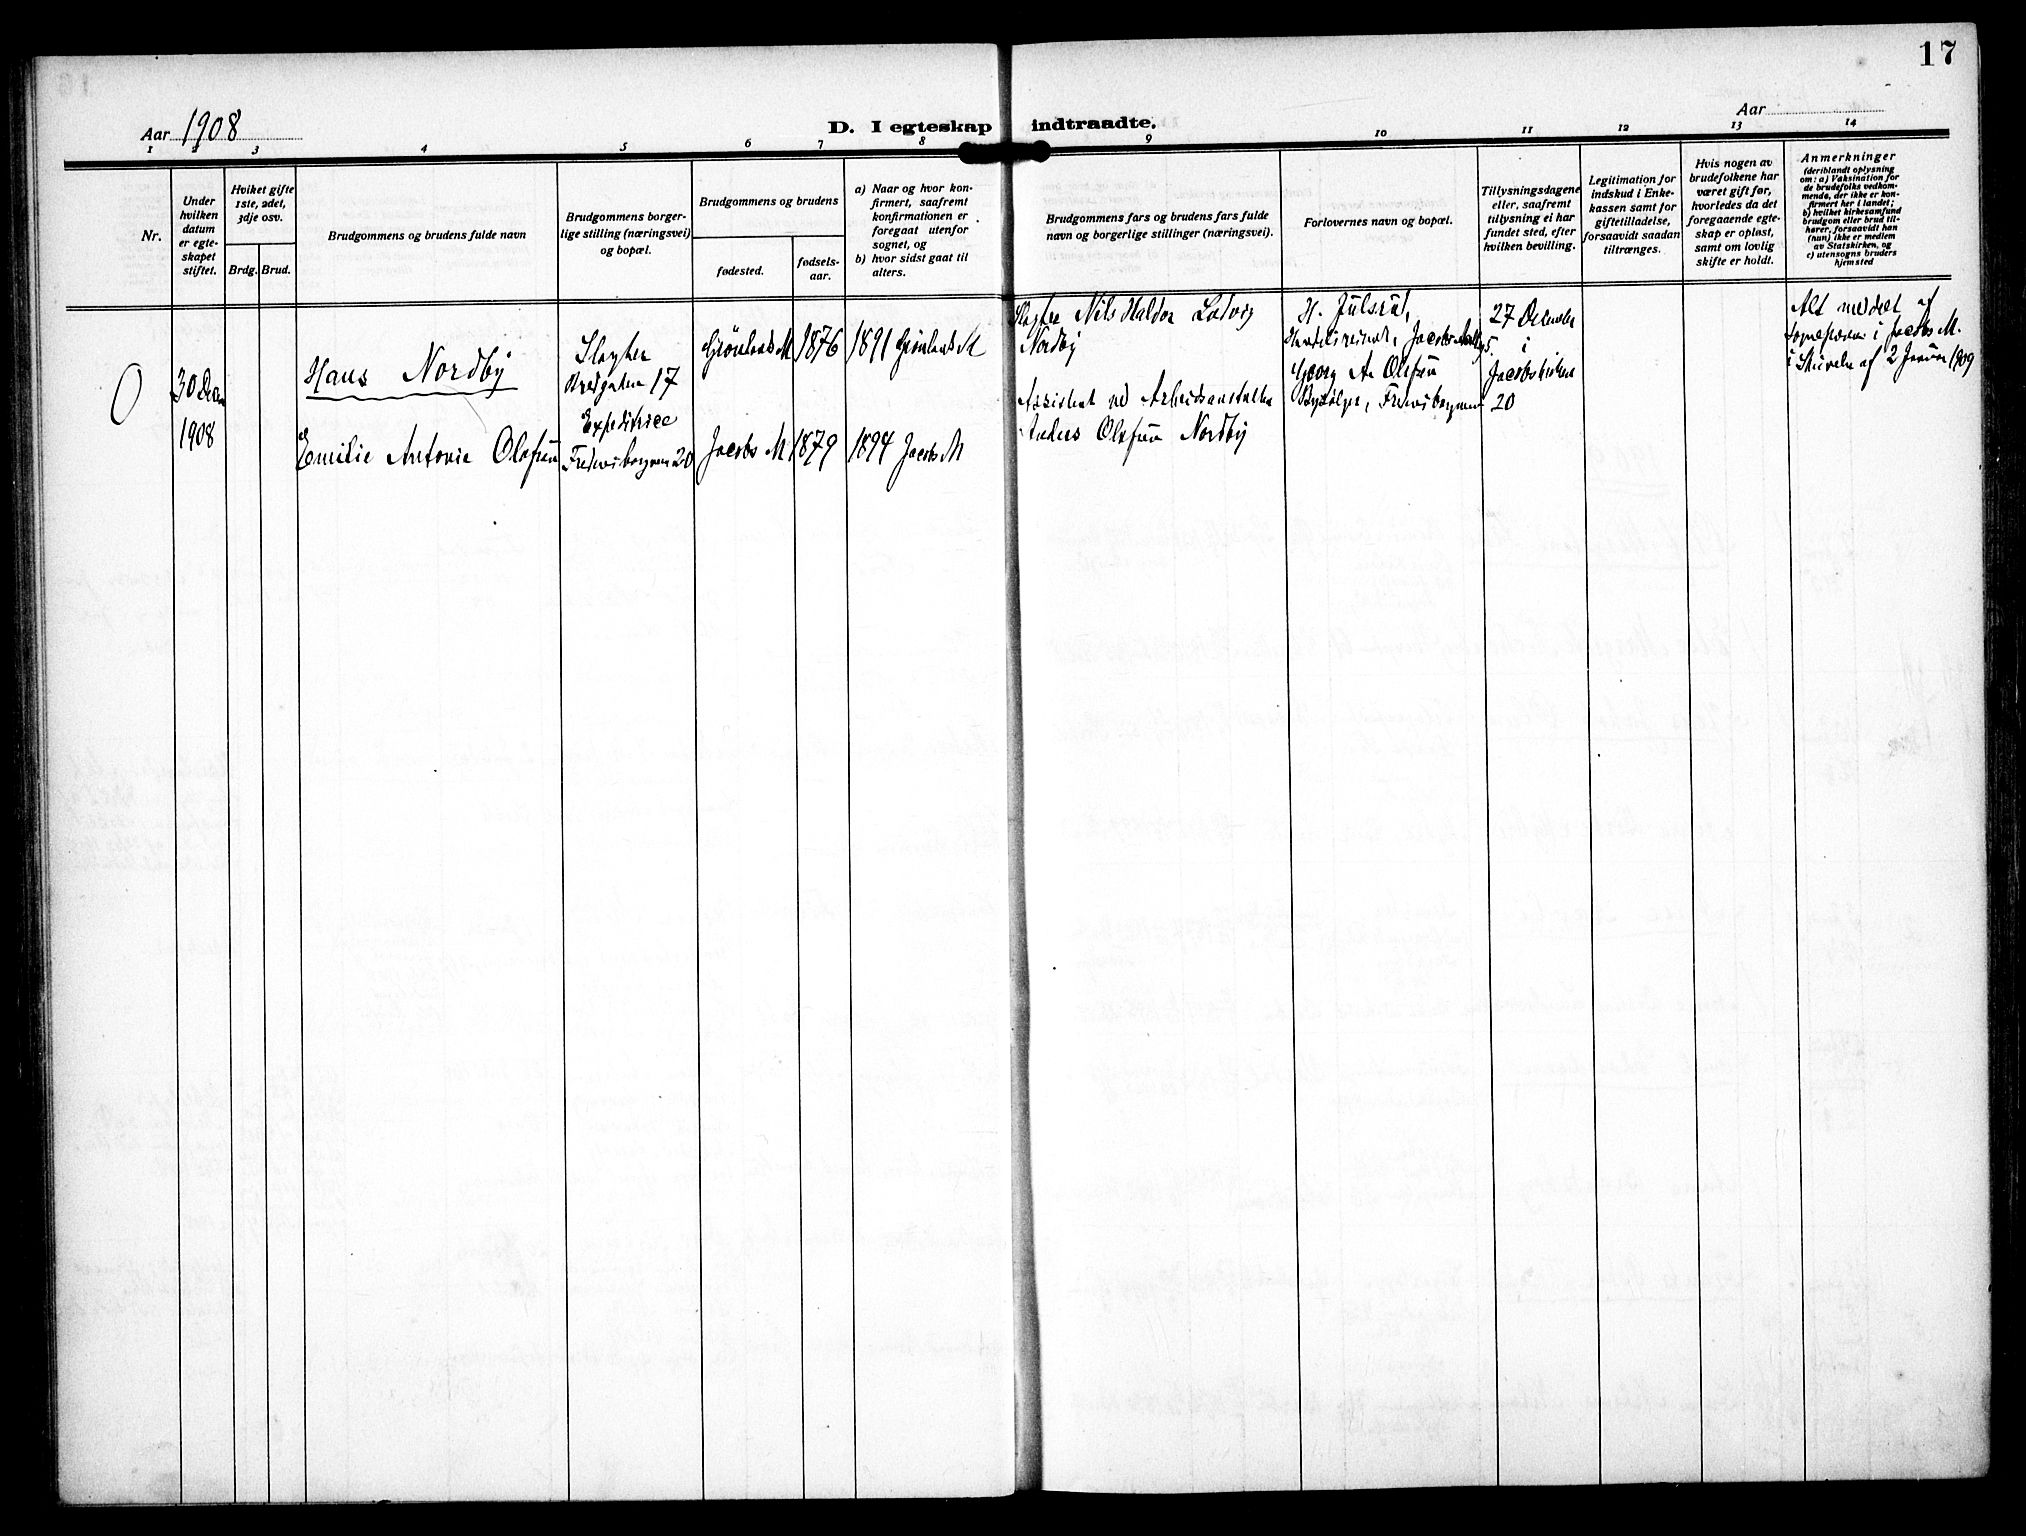 17
Aar 1908
D. I egteskap indtraadte.
Aar
1 2 3 4 5 6 7 8 9 10 11 12 13 14
Nr.
Under
hvilken
datum
er egte-
skapet
stiftet.
Hviket gifte
1ste, 2det,
3dje osv.
Brdg. Brud.
Brudgommens og brudens fulde navn
Brudgommens borger-
lige stilling (næringsvei)
og bopæl.
Brudgommens og brudens
fødested.
fødsels-
aar.
a) Naar og hvor kon-
firmert, saafremt
konfirmationen er
foregaat utenfor
sognet, og
b) hvor sidst gaat til
alters.
Brudgommens fars og brudens fars fulde
navn og borgerlige stillinger (næringsvei).
Forlovernes navn og bopæl.
Tillysningsdagene
eller, saafremt
tillysning ei har
fundet sted, efter
hvilken bevilling.
Legitimation for
indskud i Enke-
kassen samt for
giftetilladelse,
forsaavidt saadan
tiltrænges.
Hvis nogen av
brudefolkene har
været gift før,
hvorledes da det
foregaaende egte-
skap er opløst,
samt om lovlig
skifte er holdt.
Anmerkninger
(deriblandt oplysning
om: a) Vaksination for
de brudefolks vedkom-
mende, der ikke er kon-
firmert her i landet;
b) hvilket kirkesamfund
brudgom eller brud til-
hører, forsaavidt han
(hun) ikke er medlem
av Statskirken, og
c) utensogns bruders
hjemsted
30 Dec
1908
Hans Nordby
Emilie Antonie Olafsen
Slagter
Bredgaten 17
Expeditrice
Fredensborgveien 20
Grønlands M 1876
Jacobs M 1879
1891 Grønlands M
1894 Jacobs M
Slagter Nils Haldor Ludvig
Nordby
Assistent ved Arbeidsanstalten
Anders Olafsen Nordby
H. Julsrud,
Georg A. Olafsen
27 December
i
Jacobskirken
20
Alt meddelt af
Sognepræsten i Jacobs M.
i Skrivelse af 2 Januar 1909